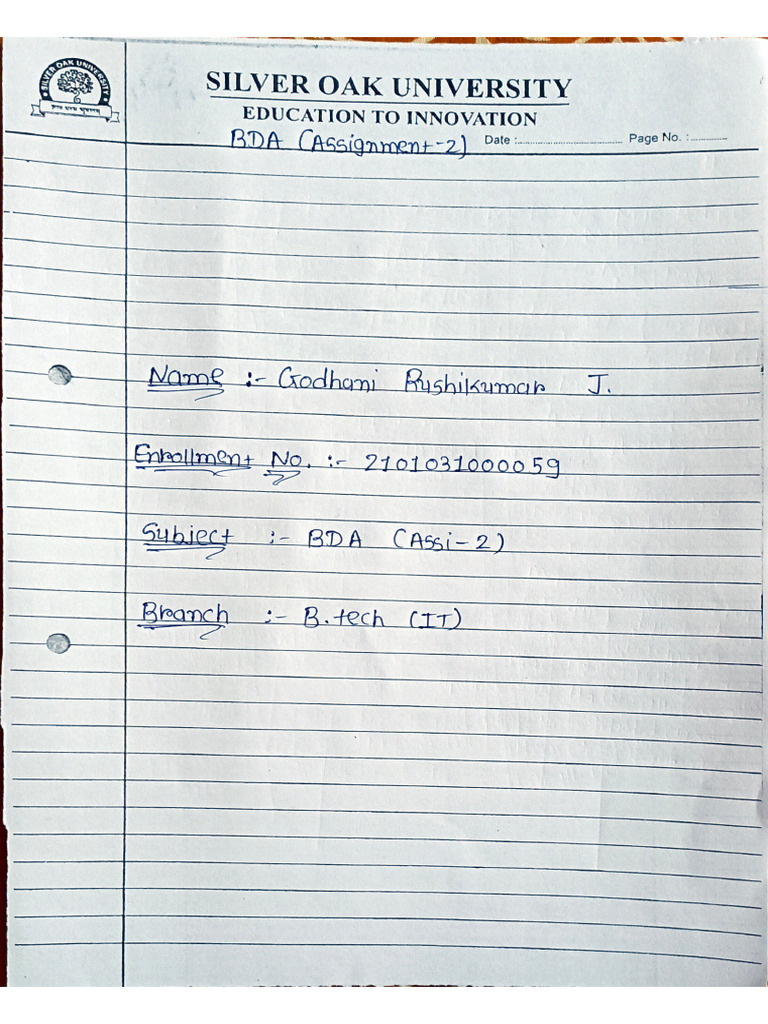 SILVER OAK UNIVERSITY
SILVER OAK UNIVERSITY
EDUCATION TO INNOVATION
BDA (Assignment-2) Date :.............................. Page No. :............
Name :- Godhani Rushikumar J.
Enrollment No. :- 2101031000059
Subject :- BDA (Assi-2)
Branch :- B.tech (IT)